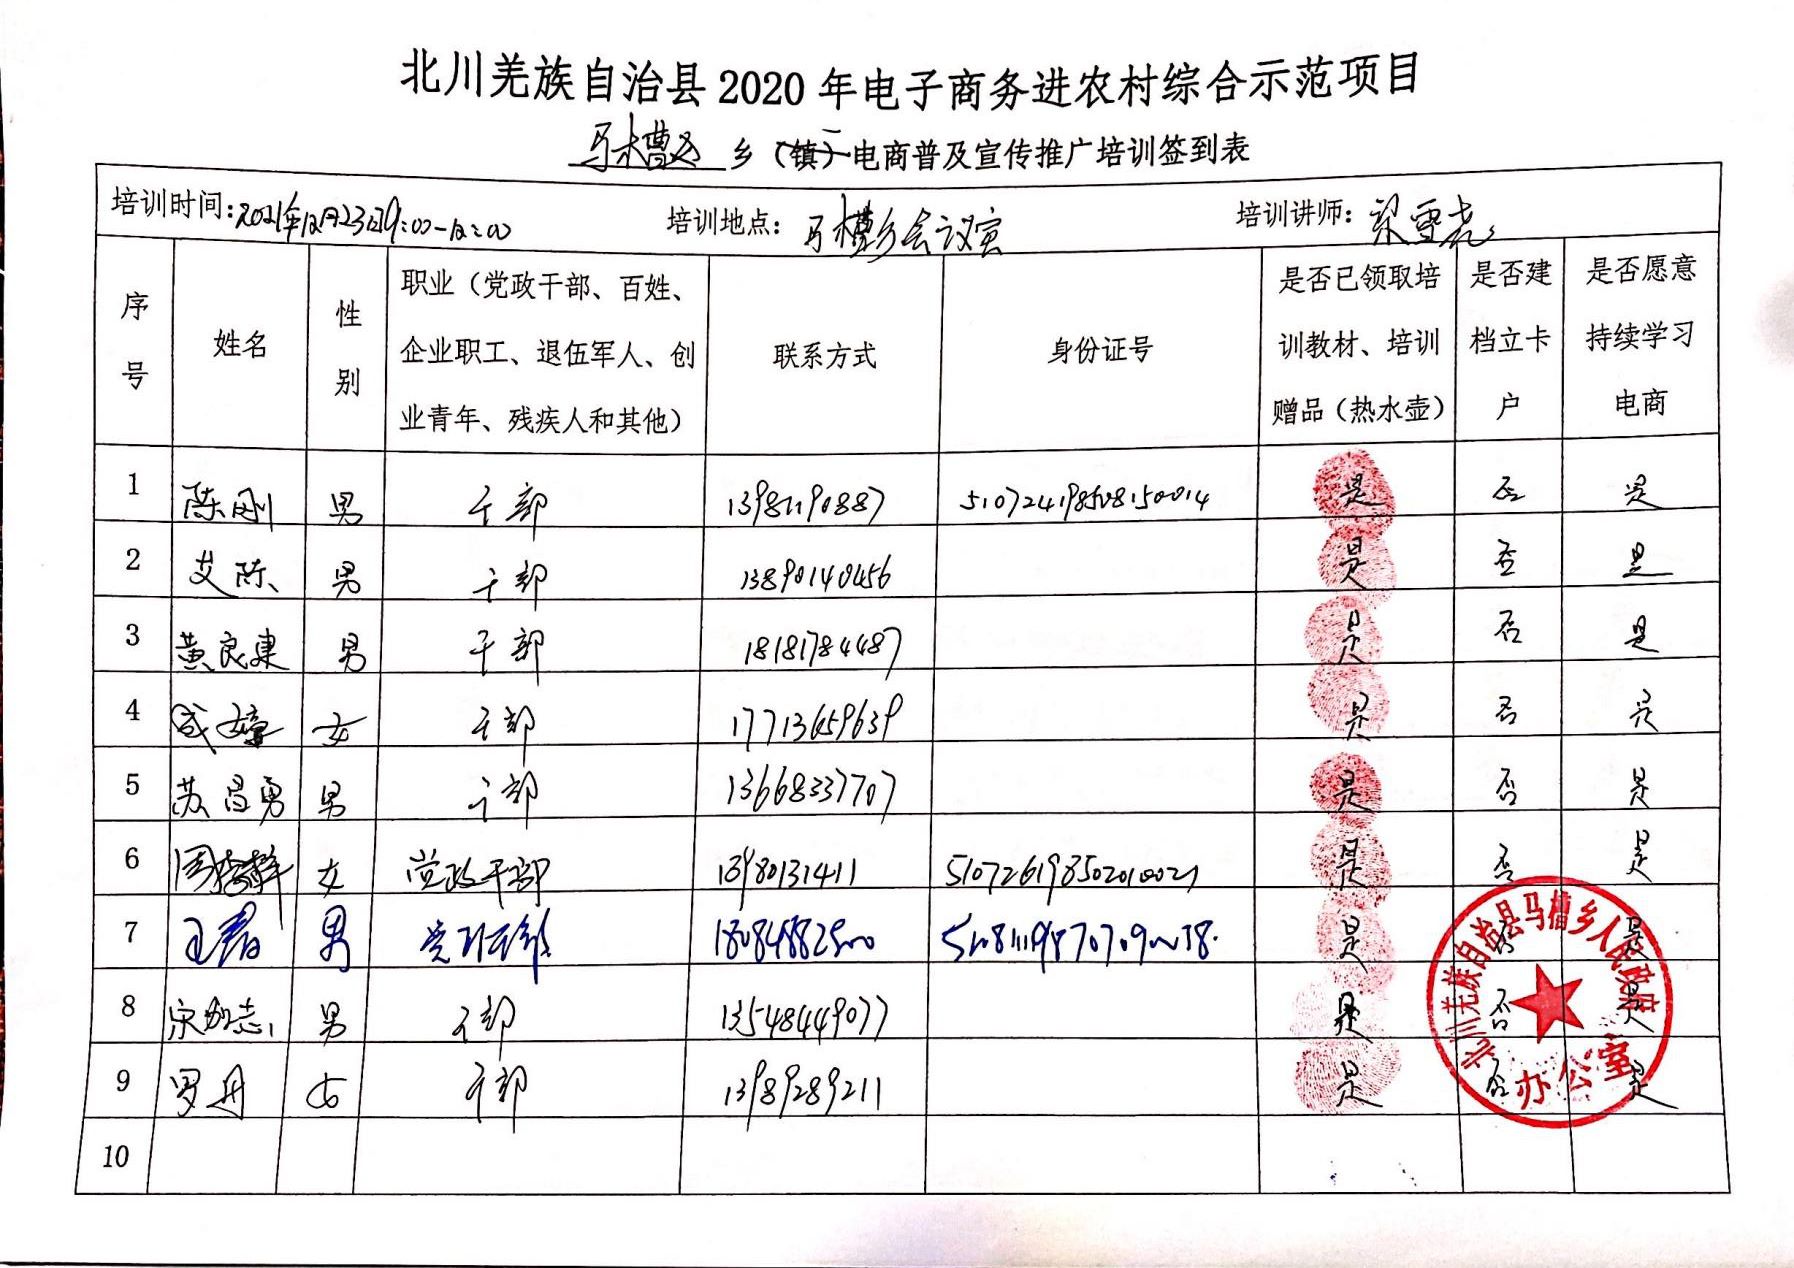 北川羌族自治县2020年电子商务进农村综合示范项目
马槽乡 乡（镇）电商普及宣传推广培训签到表
培训时间：2021年12月23日9:00-12:00 培训地点：马槽乡会议室 培训讲师：梁雪尧
序号 姓名 性别 职业（党政干部、百姓、企业职工、退伍军人、创业青年、残疾人和其他） 联系方式 身份证号 是否已领取培训教材、培训赠品（热水壶） 是否建档立卡户 是否愿意持续学习电商
1 陈刚 男 干部 13981190887 510724198508150014 是 否 是
2 艾陈 男 干部 13890140456 是 否 是
3 黄良建 男 干部 18181784487 是 否 是
4 成婷 女 干部 17713659639 是 否 是
5 苏昌勇 男 干部 13668337707 是 否 是
6 周 女 党政干部 13980131411 510726198502010021 是 否 是
7 王 男 党政干部 18084882500 是 否 是
8 宋 志 男 干部 13548449077 是 否 是
9 罗丹 女 干部 13989289211 是 否 是
10
北川羌族自治县马槽乡人民政府
办公室